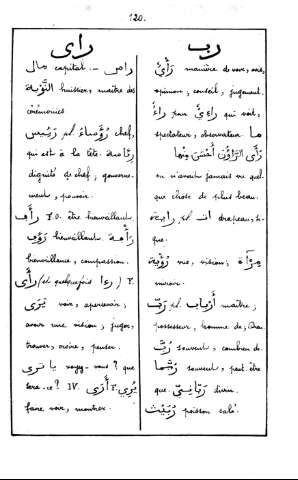 120.
راى
راس مال capital. —
النَّوْبَة huissier, maître des
cérémonies
رَئِيس pl. رُؤَسَاء chef,
qui est à la tête. رِئَاسة
dignité de chef, gouverne-
ment, pouvoir.
رأف I.O. être bienveillant
رَؤُف bienveillant رأفة
bienveillance, compassion.
رَأَى (et quelquefois رءا) I.
يَرَى voir, apercevoir;
avoir une vision; juger,
trouver, croire, penser.
يا ترى voyez-vous? que
sera-ce? IV. أَرَى I. يُرِي
faire voir, montrer.
رب
رَأْي manière de voir, avis,
opinion, conseil, jugement.
رَاءٍ pour رَاءِيٌ qui voit,
spectateur, observateur. ما
رَأَى الرَّاؤُن أَحْسَن مِنْها
on n'avait jamais vu quel
que chose de plus beau.
راية pl. ات drapeau,
رُؤْيَة vue, vision; مِرْآة
miroir.
رَبّ pl. أَرْبَاب maître;
possesseur, homme de;
رُبَّ souvent, combien de
رُبَّما souvent, peut-être
que. رَبَّانِيّ divin.
رُبَيْث poisson salé.